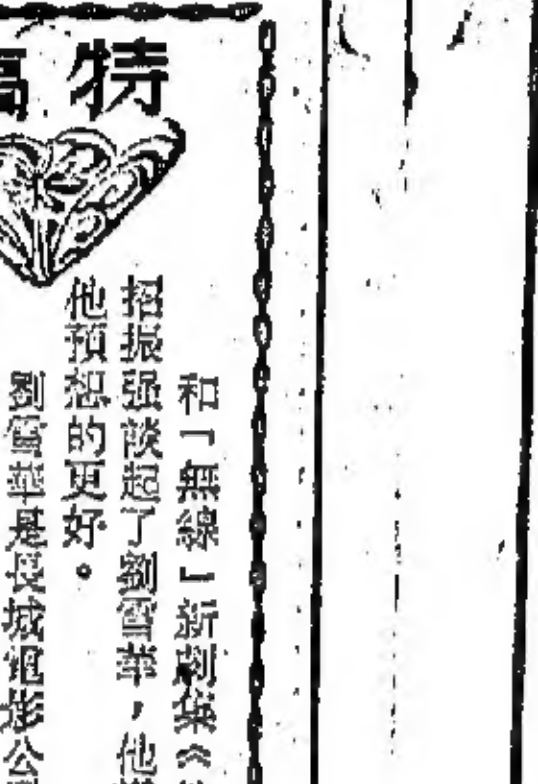 特稿
和「無線」新劇集《
招振强談起了劉雪華，他
他預想的更好。
劉雪華是長城電影公